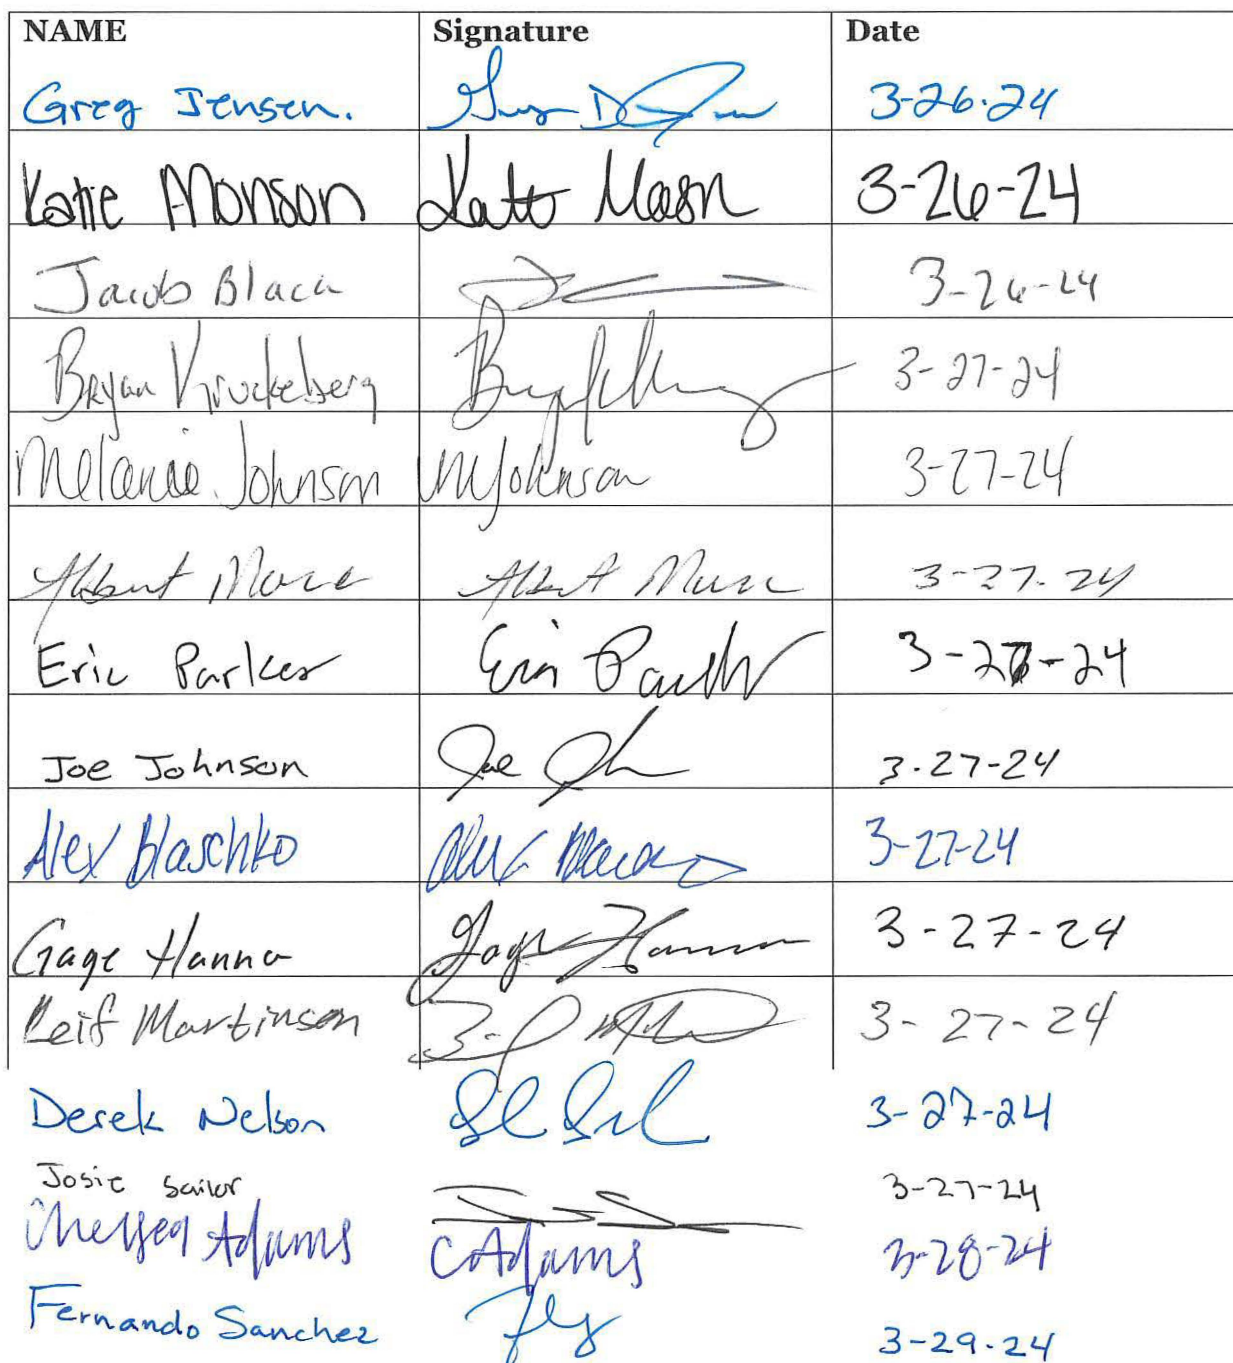 NAME Signature Date
Greg Jensen. 3-26-24
Katie Monson 3-26-24
Jacob 3-26-24
Bryan Kruckeberg 3-27-24
Melanie Johnson MJohnson 3-27-24
Albert Albert 3-27-24
Eric Parker Eric Parker 3-27-24
Joe Johnson Joe 3-27-24
Alex Blaschko Alex 3-27-24
Gage Hanna Gage Hanna 3-27-24
Leif Martinson 3-27-24
Derek Nelson 3-27-24
Josie Sailor 3-27-24
Chelsea Adams CAdams 3-28-24
Fernando Sanchez 3-29-24